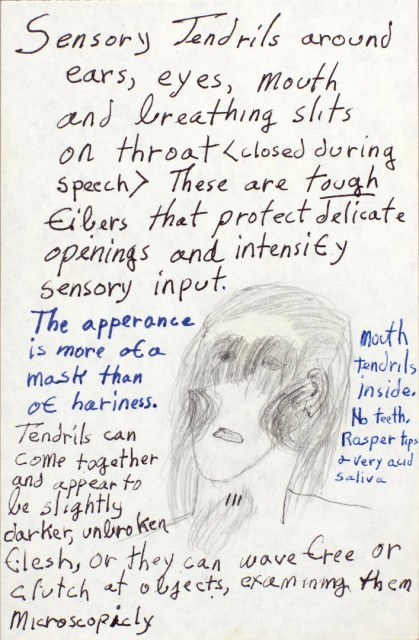 Sensory Tendrils around
ears, eyes, mouth
and breathing slits
on throat <closed during
speech> These are tough
fibers that protect delicate
openings and intensify
sensory input.
The apperance
is more of a
mask than
of hariness.
mouth
tendrils
inside.
No teeth.
Rasper tips
& very acid
saliva
Tendrils can
come together
and appear to
be slightly
darker, unbroken
flesh, or they can wave free or
clutch at objects, examining them
microscopicly